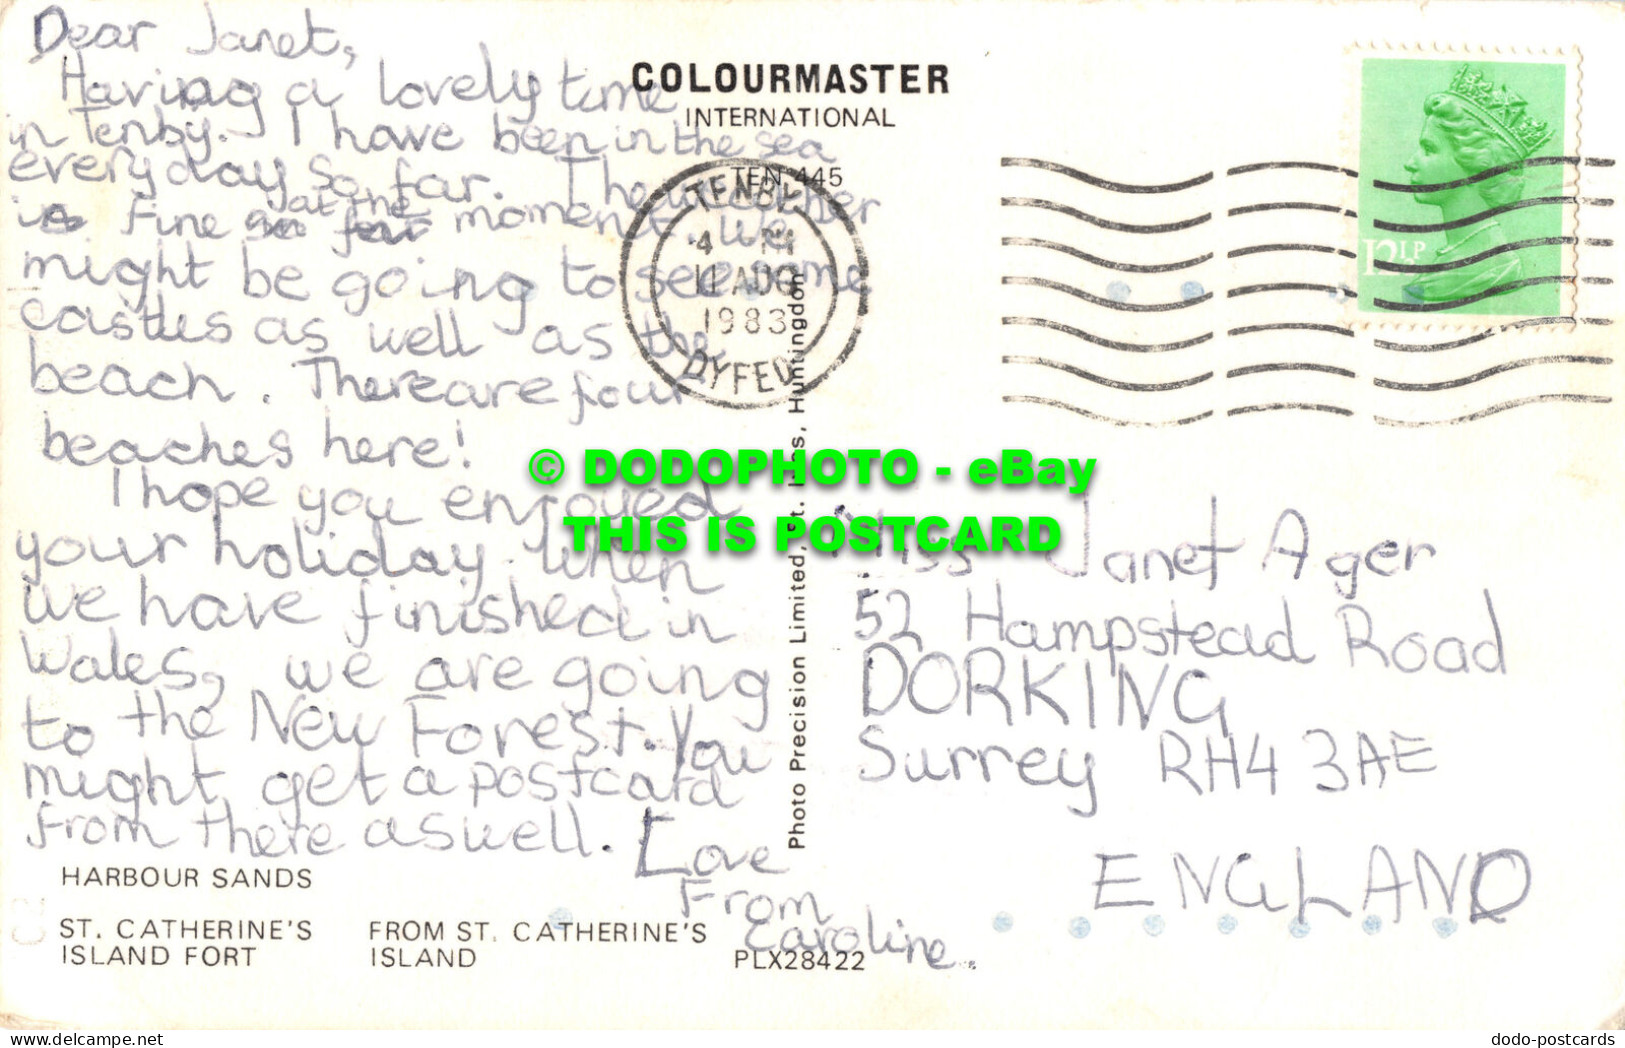 Dear Janet,
Having a lovely time
in Tenby. I have been in the sea
everyday so far. The weather
is fine so far at the moment. We
might be going to see some
castles as well as the
beach. There are four
beaches here!
I hope you enjoyed
your holiday. When
we have finished in
Wales, we are going
to the New Forest. You
might get a postcard
from there aswell.
Love
From
Caroline.
COLOURMASTER
INTERNATIONAL
TEN 445
TENBY
4 PM
11 AUG
1983
DYFED
12½P
Photo Precision Limited, St. Ives, Huntingdon
© DODOPHOTO - eBay
THIS IS POSTCARD
Miss Janet Ager
52 Hampstead Road
DORKING
Surrey RH4 3AE
ENGLAND
HARBOUR SANDS
ST. CATHERINE'S
ISLAND FORT
FROM ST. CATHERINE'S
ISLAND
PLX28422
dodo-postcards